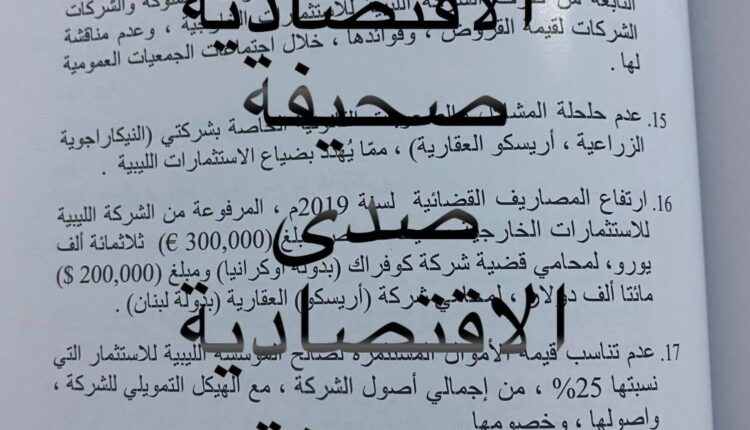 التابعة
الشركات لقيمة القروض ، وفوائدها ، خلال اجتماعات الجمعيات العمومية ، وعدم مناقشة
لها .
15. عدم حلحلة الخاصة بشركتي (النيكاراجوية
الزراعية ، أريسكو العقارية) ، ممّا يُهدّد بضياع الاستثمارات الليبية .
16. ارتفاع المصاريف القضائية لسنة 2019م ، المرفوعة من الشركة الليبية
للاستثمارات الخارجية (300,000 €) ثلاثمائة ألف
يورو، لمحامي قضية شركة كوفراك (بدولة أوكرانيا) ومبلغ (200,000 $)
مائتا ألف دولار ، لمحامي شركة (أريسكو) العقارية (بدولة لبنان) .
17. عدم تناسب قيمة الأموال المستثمرة لصالح المؤسسة الليبية للاستثمار التي
نسبتها 25% ، من إجمالي أصول الشركة ، مع الهيكل التمويلي للشركة ،
واصولها ، وخصومها
الاقتصادية
صحيفة
صدى
الاقتصادية